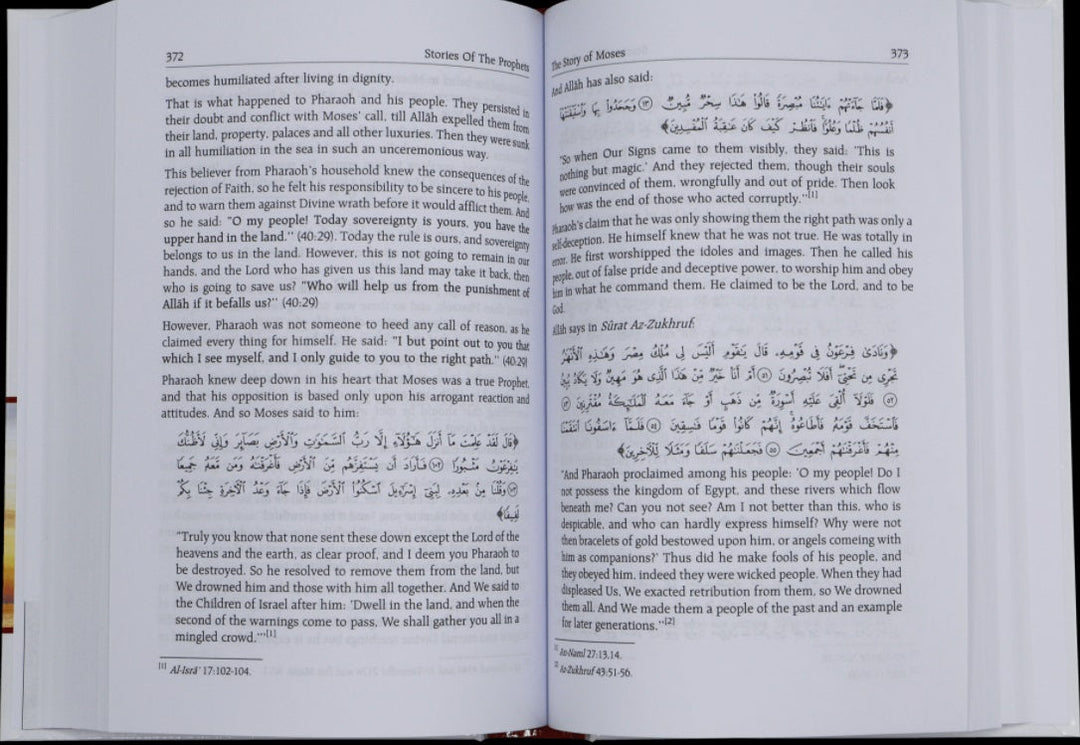 372
Stories Of The Prophets
becomes humiliated after living in dignity.
That is what happened to Pharaoh and his people. They persisted in
their doubt and conflict with Moses' call, till Allāh expelled them from
their land, property, palaces and all other luxuries. Then they were sunk
in all humiliation in the sea in such an unceremonious way.
This believer from Pharaoh's household knew the consequences of the
rejection of Faith, so he felt his responsibility to be sincere to his people,
and to warn them against Divine wrath before it would afflict them. And
so he said: "O my people! Today sovereignty is yours, you have the
upper hand in the land." (40:29). Today the rule is ours, and sovereignty
belongs to us in the land. However, this is not going to remain in our
hands, and the Lord who has given us this land may take it back, then
who is going to save us? "Who will help us from the punishment of
Allāh if it befalls us?" (40:29)
However, Pharaoh was not someone to heed any call of reason, as he
claimed every thing for himself. He said: "I but point out to you that
which I see myself, and I only guide you to the right path." (40:29)
Pharaoh knew deep down in his heart that Moses was a true Prophet,
and that his opposition is based only upon his arrogant reaction and
attitudes. And so Moses said to him:
﴿قَالَ لَقَدْ عَلِمْتَ مَآ أَنزَلَ هَـٰٓؤُلَآءِ إِلَّا رَبُّ ٱلسَّمَـٰوَٰتِ وَٱلْأَرْضِ بَصَآئِرَ وَإِنِّى لَأَظُنُّكَ
يَـٰفِرْعَوْنُ مَثْبُورًا ١٠٢ فَأَرَادَ أَن يَسْتَفِزَّهُم مِّنَ ٱلْأَرْضِ فَأَغْرَقْنَـٰهُ وَمَن مَّعَهُۥ جَمِيعًا
١٠٣ وَقُلْنَا مِنۢ بَعْدِهِۦ لِبَنِىٓ إِسْرَٰٓءِيلَ ٱسْكُنُوا۟ ٱلْأَرْضَ فَإِذَا جَآءَ وَعْدُ ٱلْـَٔاخِرَةِ جِئْنَا بِكُمْ
لَفِيفًا﴾
"Truly you know that none sent these down except the Lord of the
heavens and the earth, as clear proof, and I deem you Pharaoh to
be destroyed. So he resolved to remove them from the land, but
We drowned him and those with him all together. And We said to
the Children of Israel after him: 'Dwell in the land, and when the
second of the warnings come to pass, We shall gather you all in a
mingled crowd.'"[1]
[1] Al-Isrā' 17:102-104.
The Story of Moses
373
And Allāh has also said:
﴿فَلَمَّا جَآءَتْهُمْ ءَايَـٰتُنَا مُبْصِرَةً قَالُوا۟ هَـٰذَا سِحْرٌ مُّبِينٌ ١٣ وَجَحَدُوا۟ بِهَا وَٱسْتَيْقَنَتْهَآ
أَنفُسُهُمْ ظُلْمًا وَعُلُوًّا ۚ فَٱنظُرْ كَيْفَ كَانَ عَـٰقِبَةُ ٱلْمُفْسِدِينَ﴾
"So when Our Signs came to them visibly, they said: 'This is
nothing but magic.' And they rejected them, though their souls
were convinced of them, wrongfully and out of pride. Then look
how was the end of those who acted corruptly."[1]
Pharaoh's claim that he was only showing them the right path was only a
self-deception. He himself knew that he was not true. He was totally in
error. He first worshipped the idoles and images. Then he called his
people, out of false pride and deceptive power, to worship him and obey
him in what he command them. He claimed to be the Lord, and to be
God.
Allāh says in Sûrat Az-Zukhruf:
﴿وَنَادَىٰ فِرْعَوْنُ فِى قَوْمِهِۦ قَالَ يَـٰقَوْمِ أَلَيْسَ لِى مُلْكُ مِصْرَ وَهَـٰذِهِ ٱلْأَنْهَـٰرُ
تَجْرِى مِن تَحْتِىٓ أَفَلَا تُبْصِرُونَ ٥١ أَمْ أَنَا۠ خَيْرٌ مِّنْ هَـٰذَا ٱلَّذِى هُوَ مَهِينٌ وَلَا يَكَادُ يُبِينُ
٥٢ فَلَوْلَآ أُلْقِىَ عَلَيْهِ أَسْوِرَةٌ مِّن ذَهَبٍ أَوْ جَآءَ مَعَهُ ٱلْمَلَـٰٓئِكَةُ مُقْتَرِنِينَ ٥٣
فَٱسْتَخَفَّ قَوْمَهُۥ فَأَطَاعُوهُ ۚ إِنَّهُمْ كَانُوا۟ قَوْمًا فَـٰسِقِينَ ٥٤ فَلَمَّآ ءَاسَفُونَا ٱنتَقَمْنَا
مِنْهُمْ فَأَغْرَقْنَـٰهُمْ أَجْمَعِينَ ٥٥ فَجَعَلْنَـٰهُمْ سَلَفًا وَمَثَلًا لِّلْـَٔاخِرِينَ﴾
"And Pharaoh proclaimed among his people: 'O my people! Do I
not possess the kingdom of Egypt, and these rivers which flow
beneath me? Can you not see? Am I not better than this, who is
despicable, and who can hardly express himself? Why were not
then bracelets of gold bestowed upon him, or angels comeing with
him as companions?' Thus did he make fools of his people, and
they obeyed him, indeed they were wicked people. When they had
displeased Us, We exacted retribution from them, so We drowned
them all. And We made them a people of the past and an example
for later generations."[2]
[1] An-Naml 27:13,14.
[2] Az-Zukhruf 43:51-56.